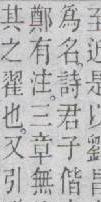 至近是以劉冒
為名詩君子偕
鄭有注三章無
其之翟也又引